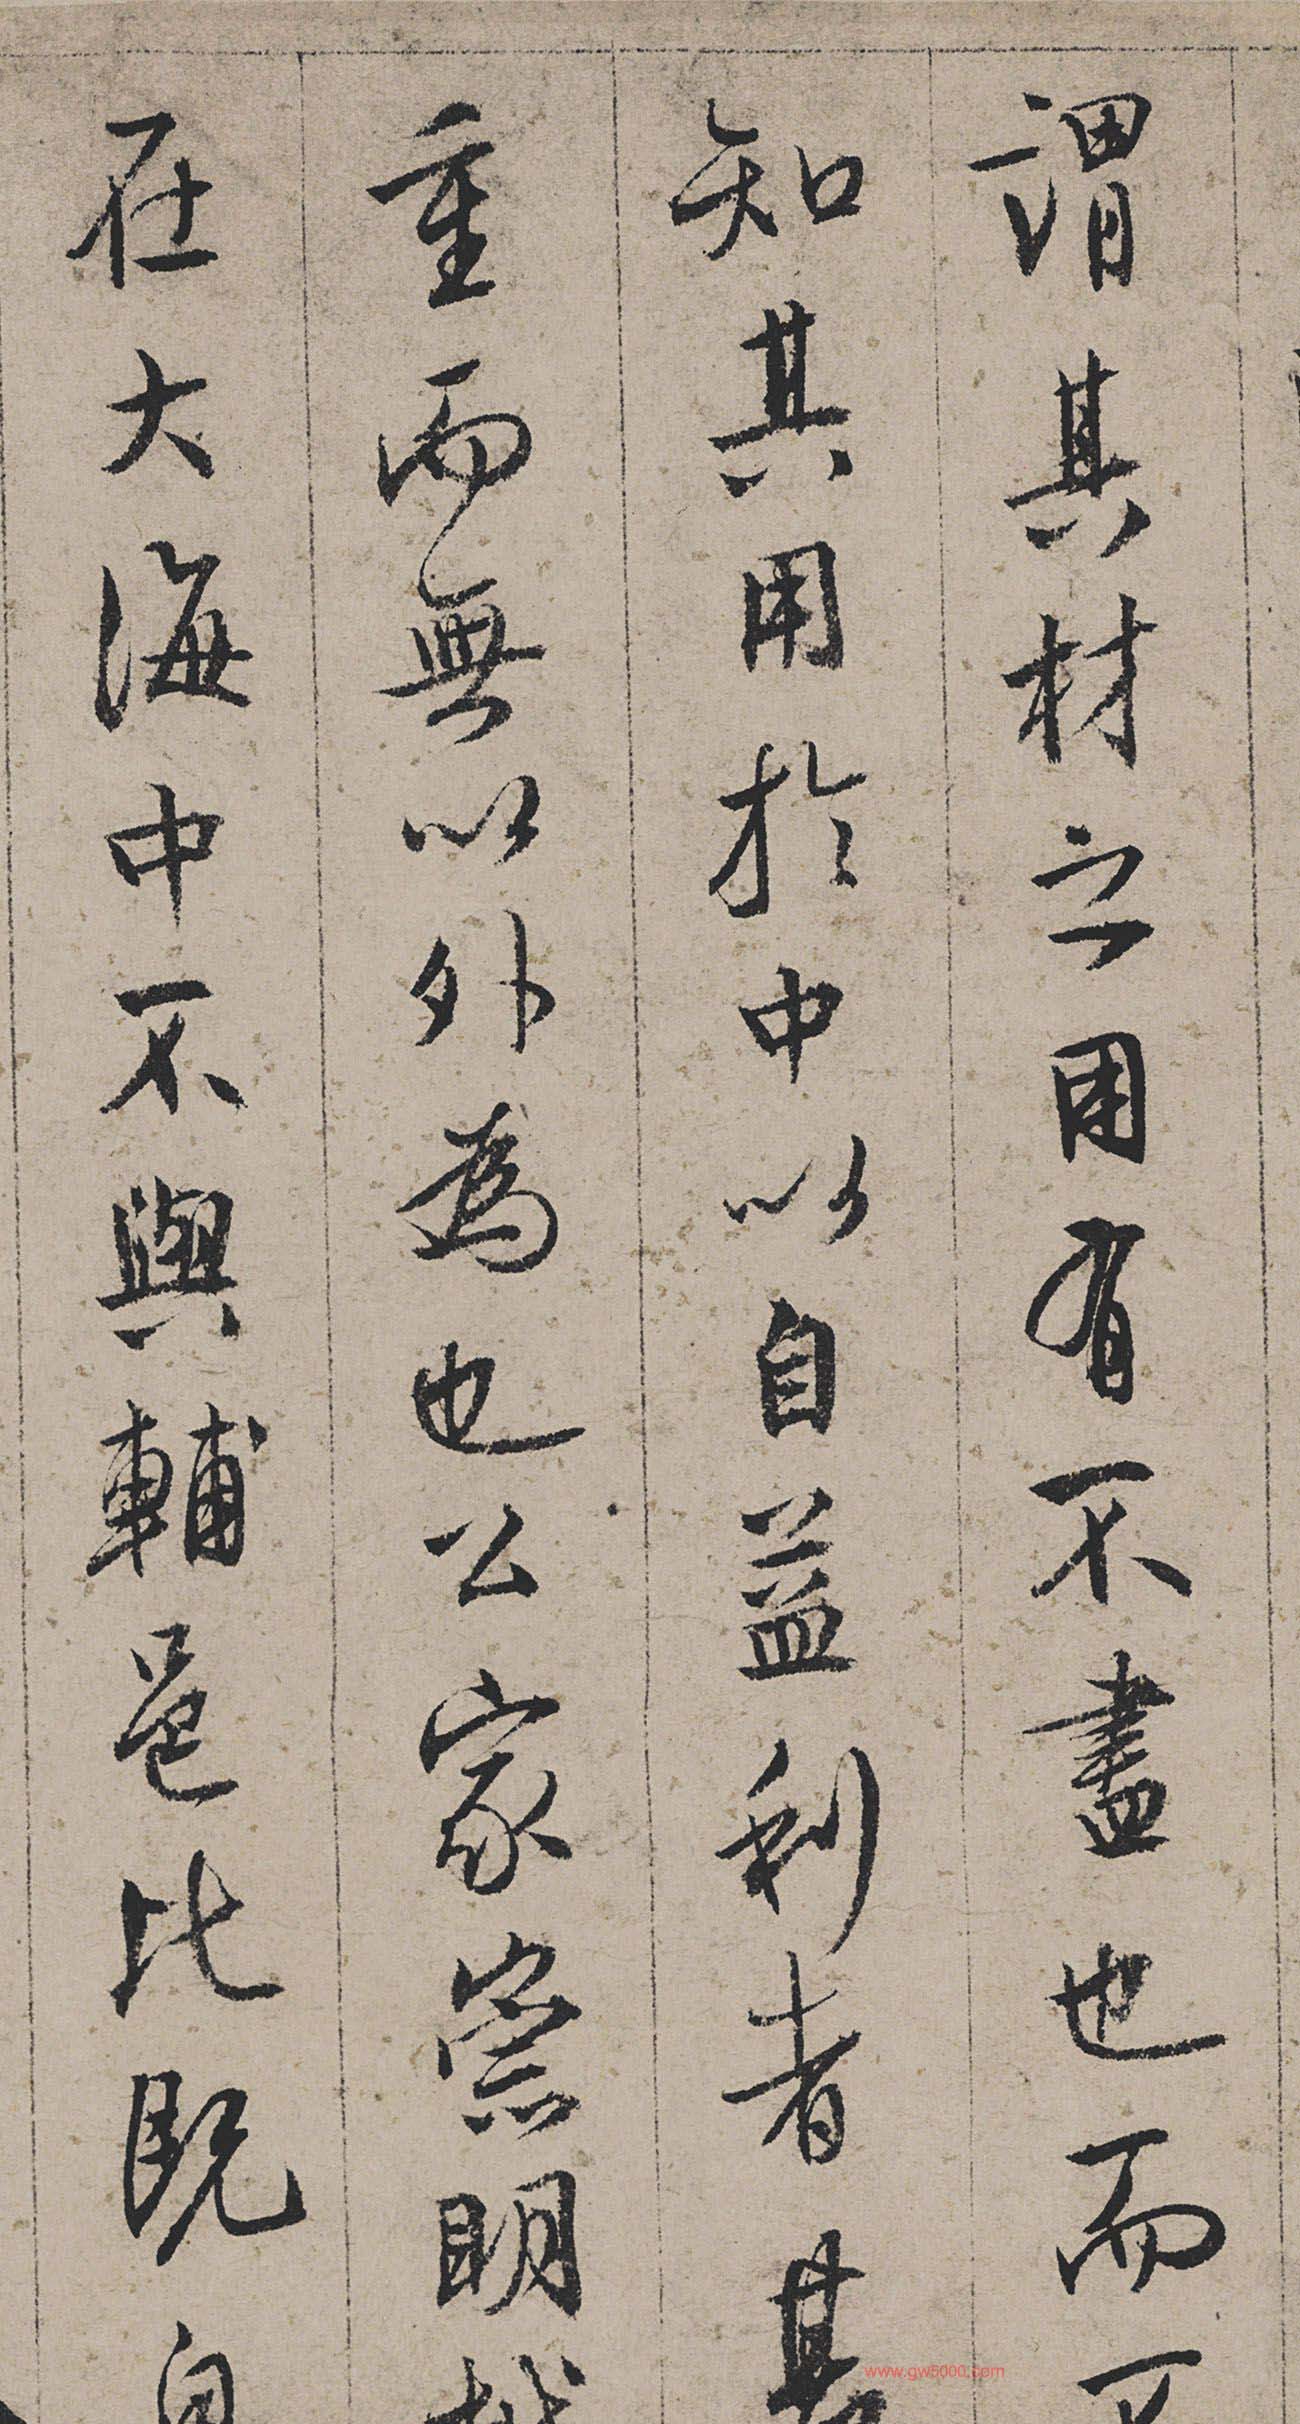 謂其材之用有不盡也而不
知其用於中以自益利者甚
重而無以外為也公家崇明
在大海中不與輔邑比既
www.gw5000.com